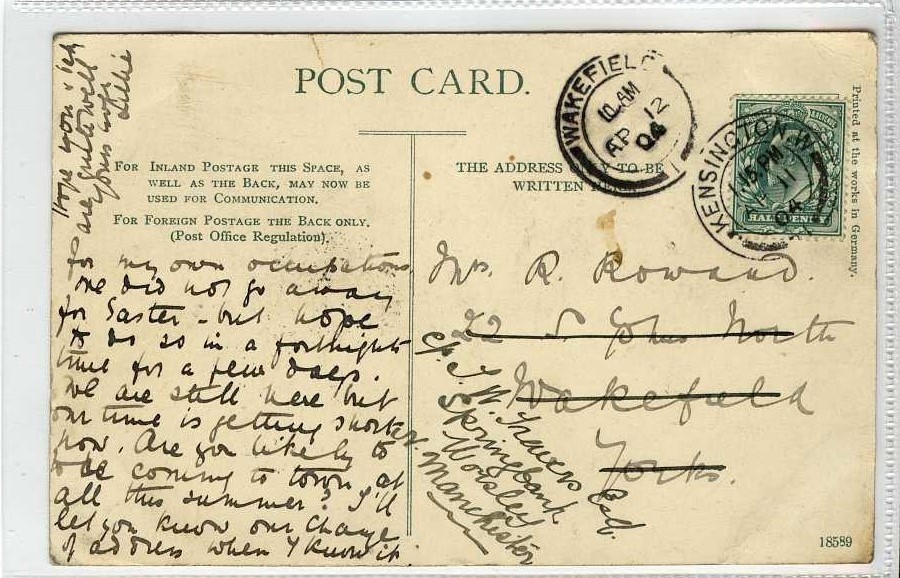 POST CARD.
FOR INLAND POSTAGE THIS SPACE, AS
WELL AS THE BACK, MAY NOW BE
USED FOR COMMUNICATION.
FOR FOREIGN POSTAGE THE BACK ONLY.
(Post Office Regulation).
THE ADDRESS ONLY TO BE
WRITTEN HERE.
WAKEFIELD
10 AM
AP 12
04
KENSINGTON. W.
1.15 PM
11
04
HALFPENNY
Printed at the works in Germany.
for my own occupations
we did not go away
for Easter - but hope
to do so in a fortnights
time for a few days.
We are still here but
our time is getting short
now. Are you likely to
be coming to town at
all this summer? I'll
let you know our change
of address when I know it.
Hope you
are quite well
Yours ever
Lillie
Mrs. R. Rowand.
22 St Johns North
Wakefield
Yorks.
c/o J. W. Travers Esq.
Springbank
Worsley
Nr. Manchester
18589